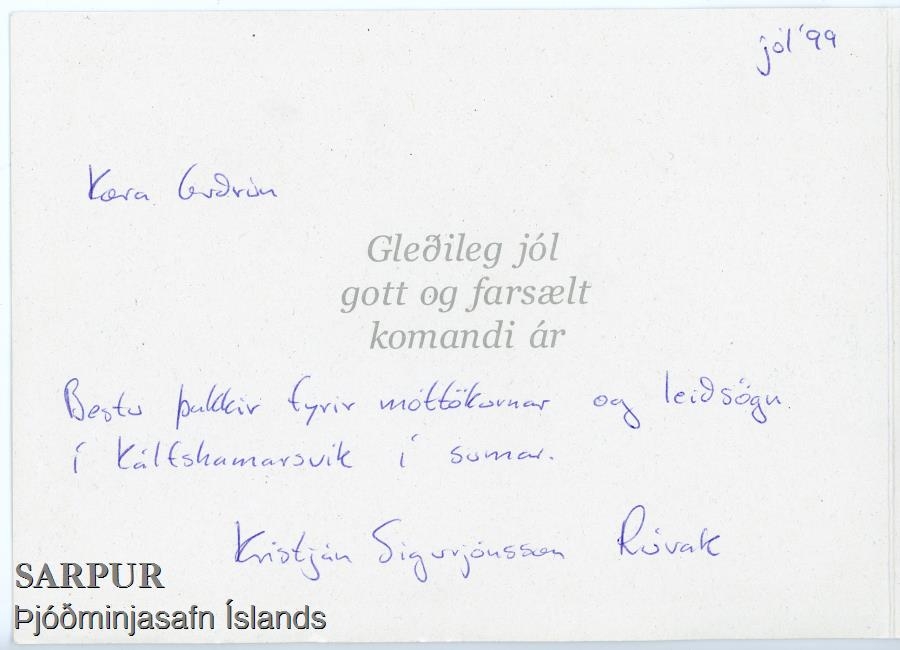 jól '99
Kæra Guðrún
Gleðileg jól
gott og farsælt
komandi ár
Bestu þakkir fyrir móttökurnar og leiðsögn
í Kálfshamarsvík í sumar.
Kristján Sigurjónsson Rúvak
SARPUR
Þjóðminjasafn Íslands